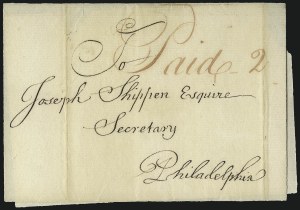 Paid 2
To
Joseph Shippen Esquire
Secretary
Philadelphia